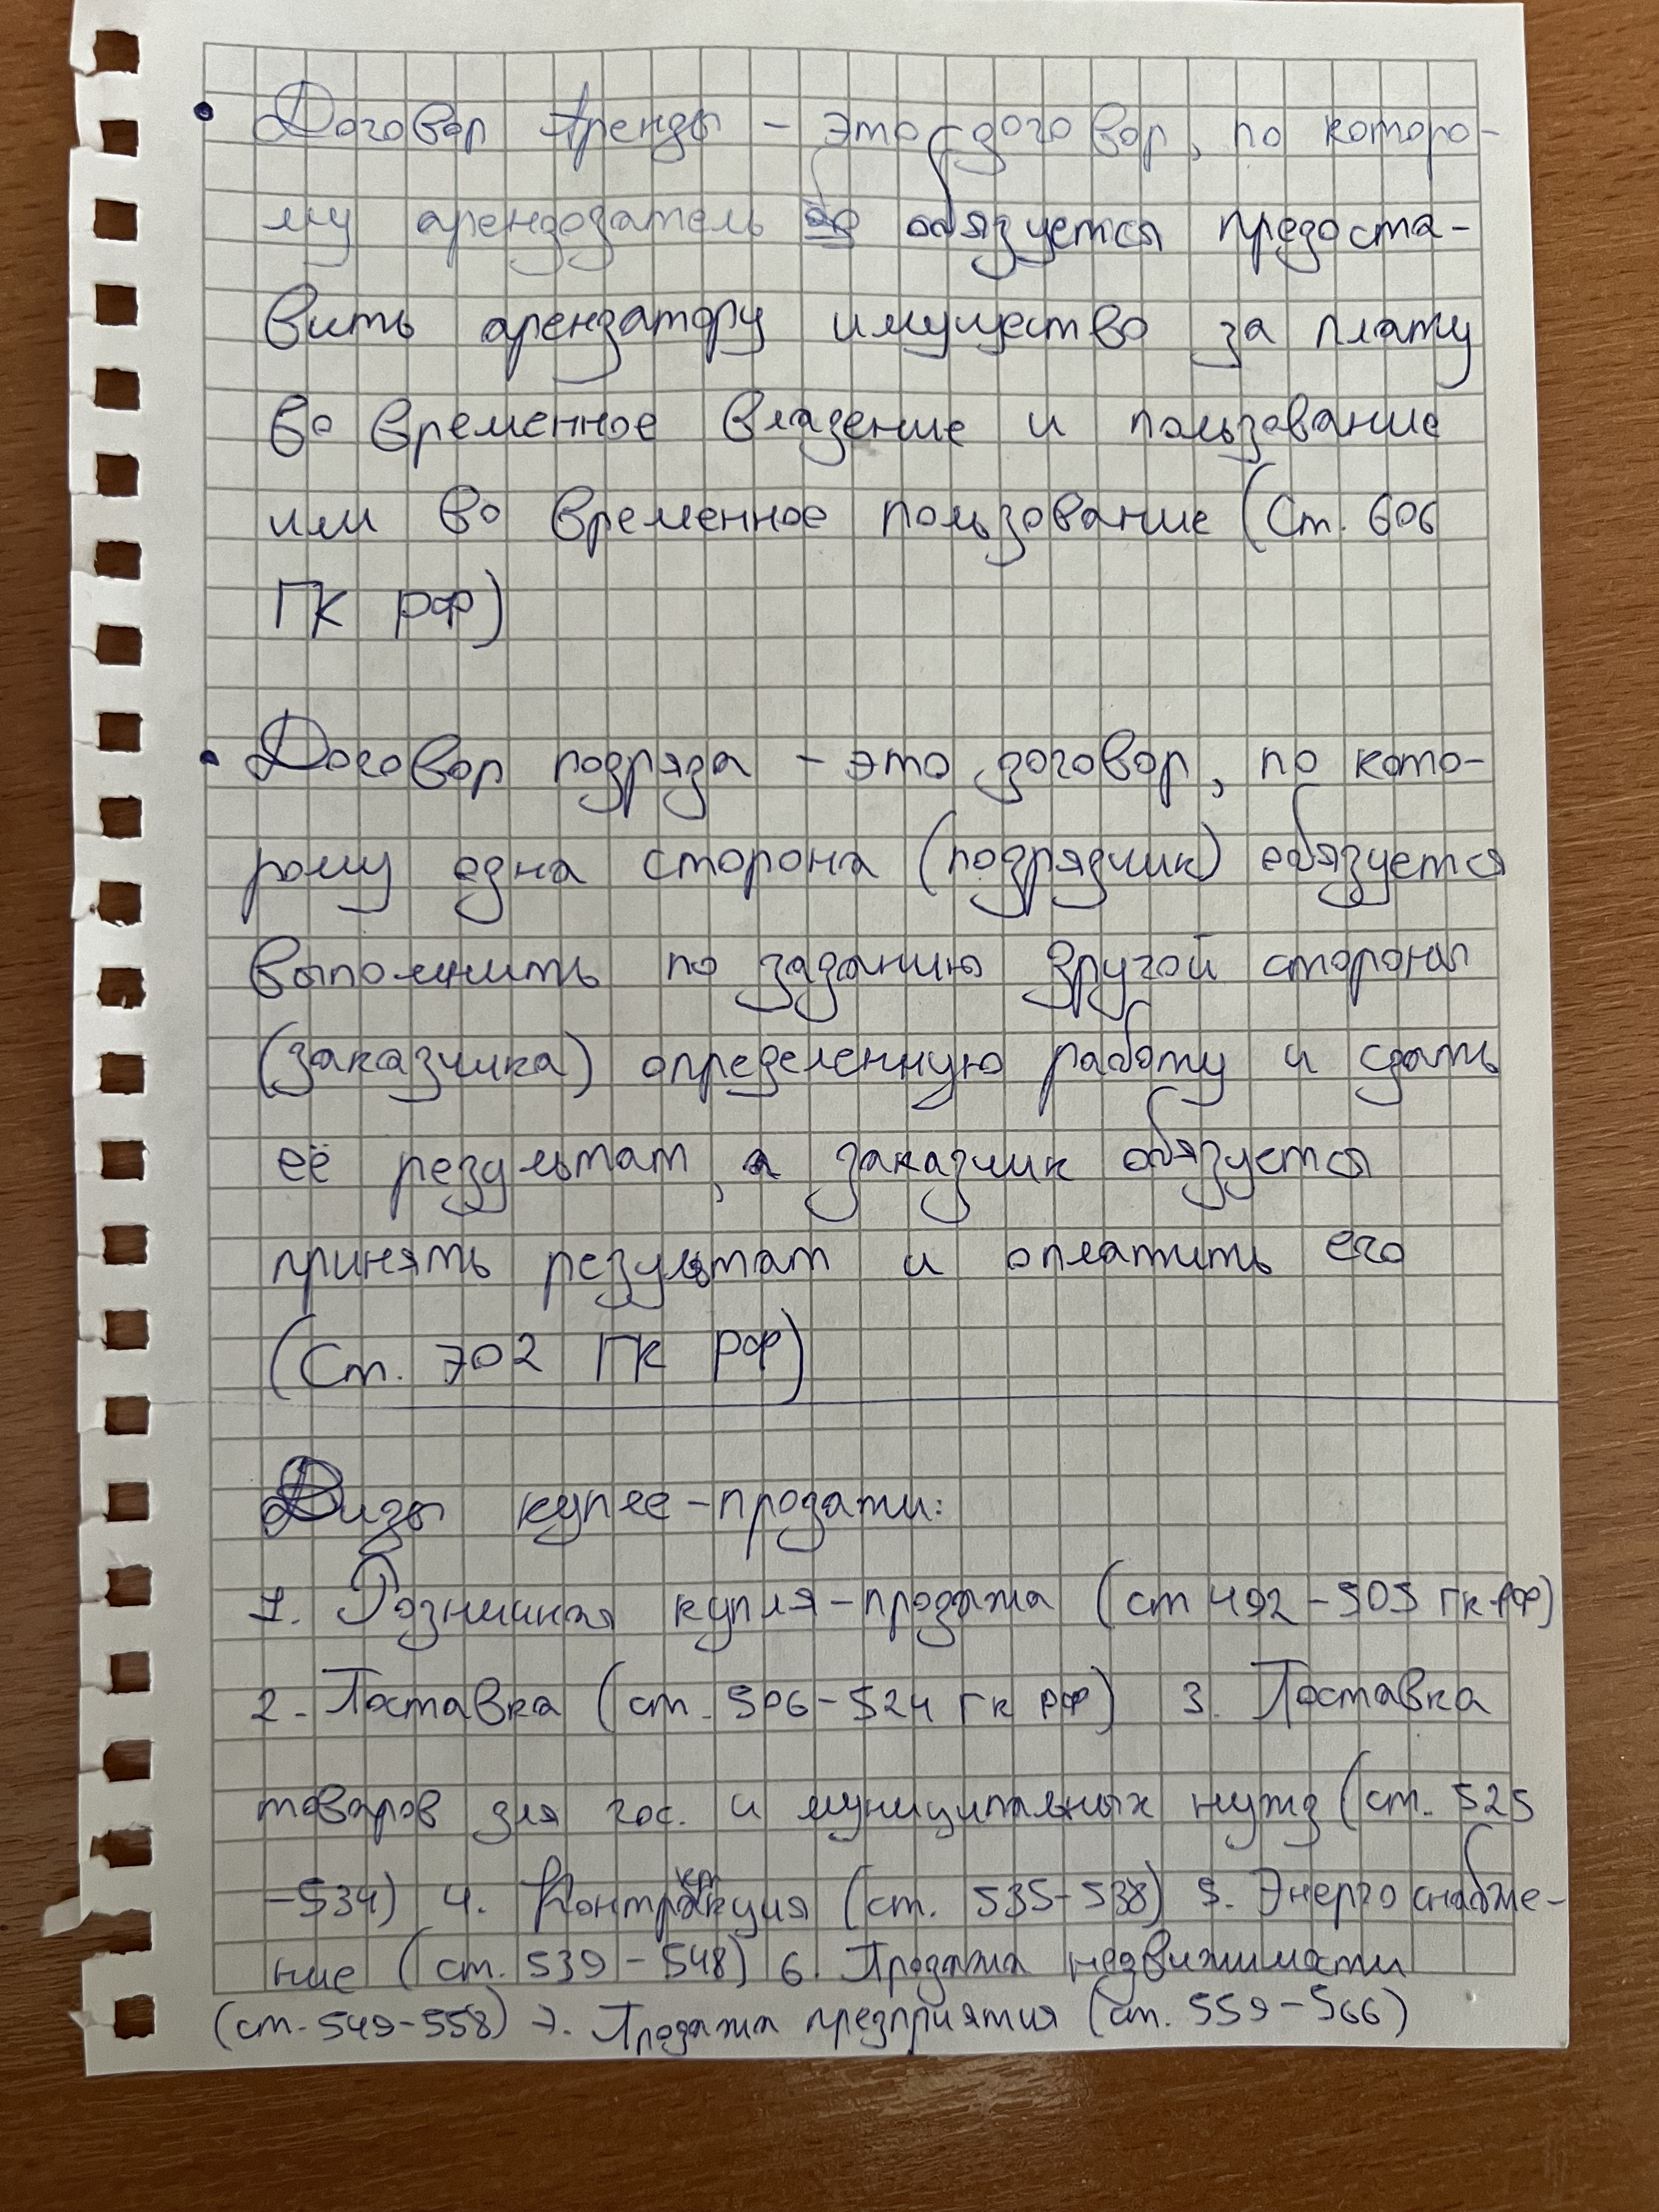 • Договор Аренды – это договор, по которо-
му арендозатель об обязуется предоста-
вить арендатору имущество за плату
во временное владение и пользование
или во временное пользование (Ст. 606
ГК РФ)
• Договор подряда – это договор, по кото-
рому одна сторона (подрядчик) обязуется
выполнить по заданию другой стороны
(заказчика) определенную работу и сдать
её результат, а заказчик обязуется
принять результат и оплатить его
(Ст. 702 ГК РФ)
Виды купле-продажи:
1. Розничная купля-продажа (ст 492 – 505 ГК РФ)
2. Поставка (ст. 506 – 524 ГК РФ) 3. Поставка
товаров для гос. и муниципальных нужд (ст. 525
– 534) 4. Контракция (ст. 535 – 538) 5. Энергоснабже-
ние (ст. 539 – 548) 6. Продажа недвижимости
(ст. 549 – 558) 7. Продажа предприятия (ст. 559 – 566)